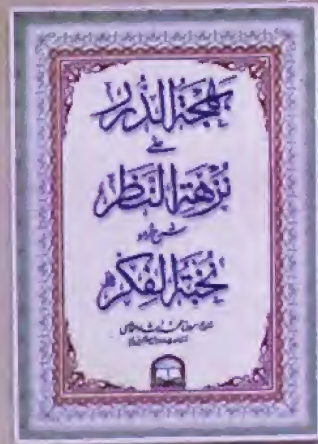 بهجة الدرر
على
نزهة النظر
شرح اردو
نخبة الفكر